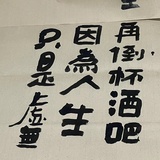 再倒杯酒吧
因為人生
只是虛無